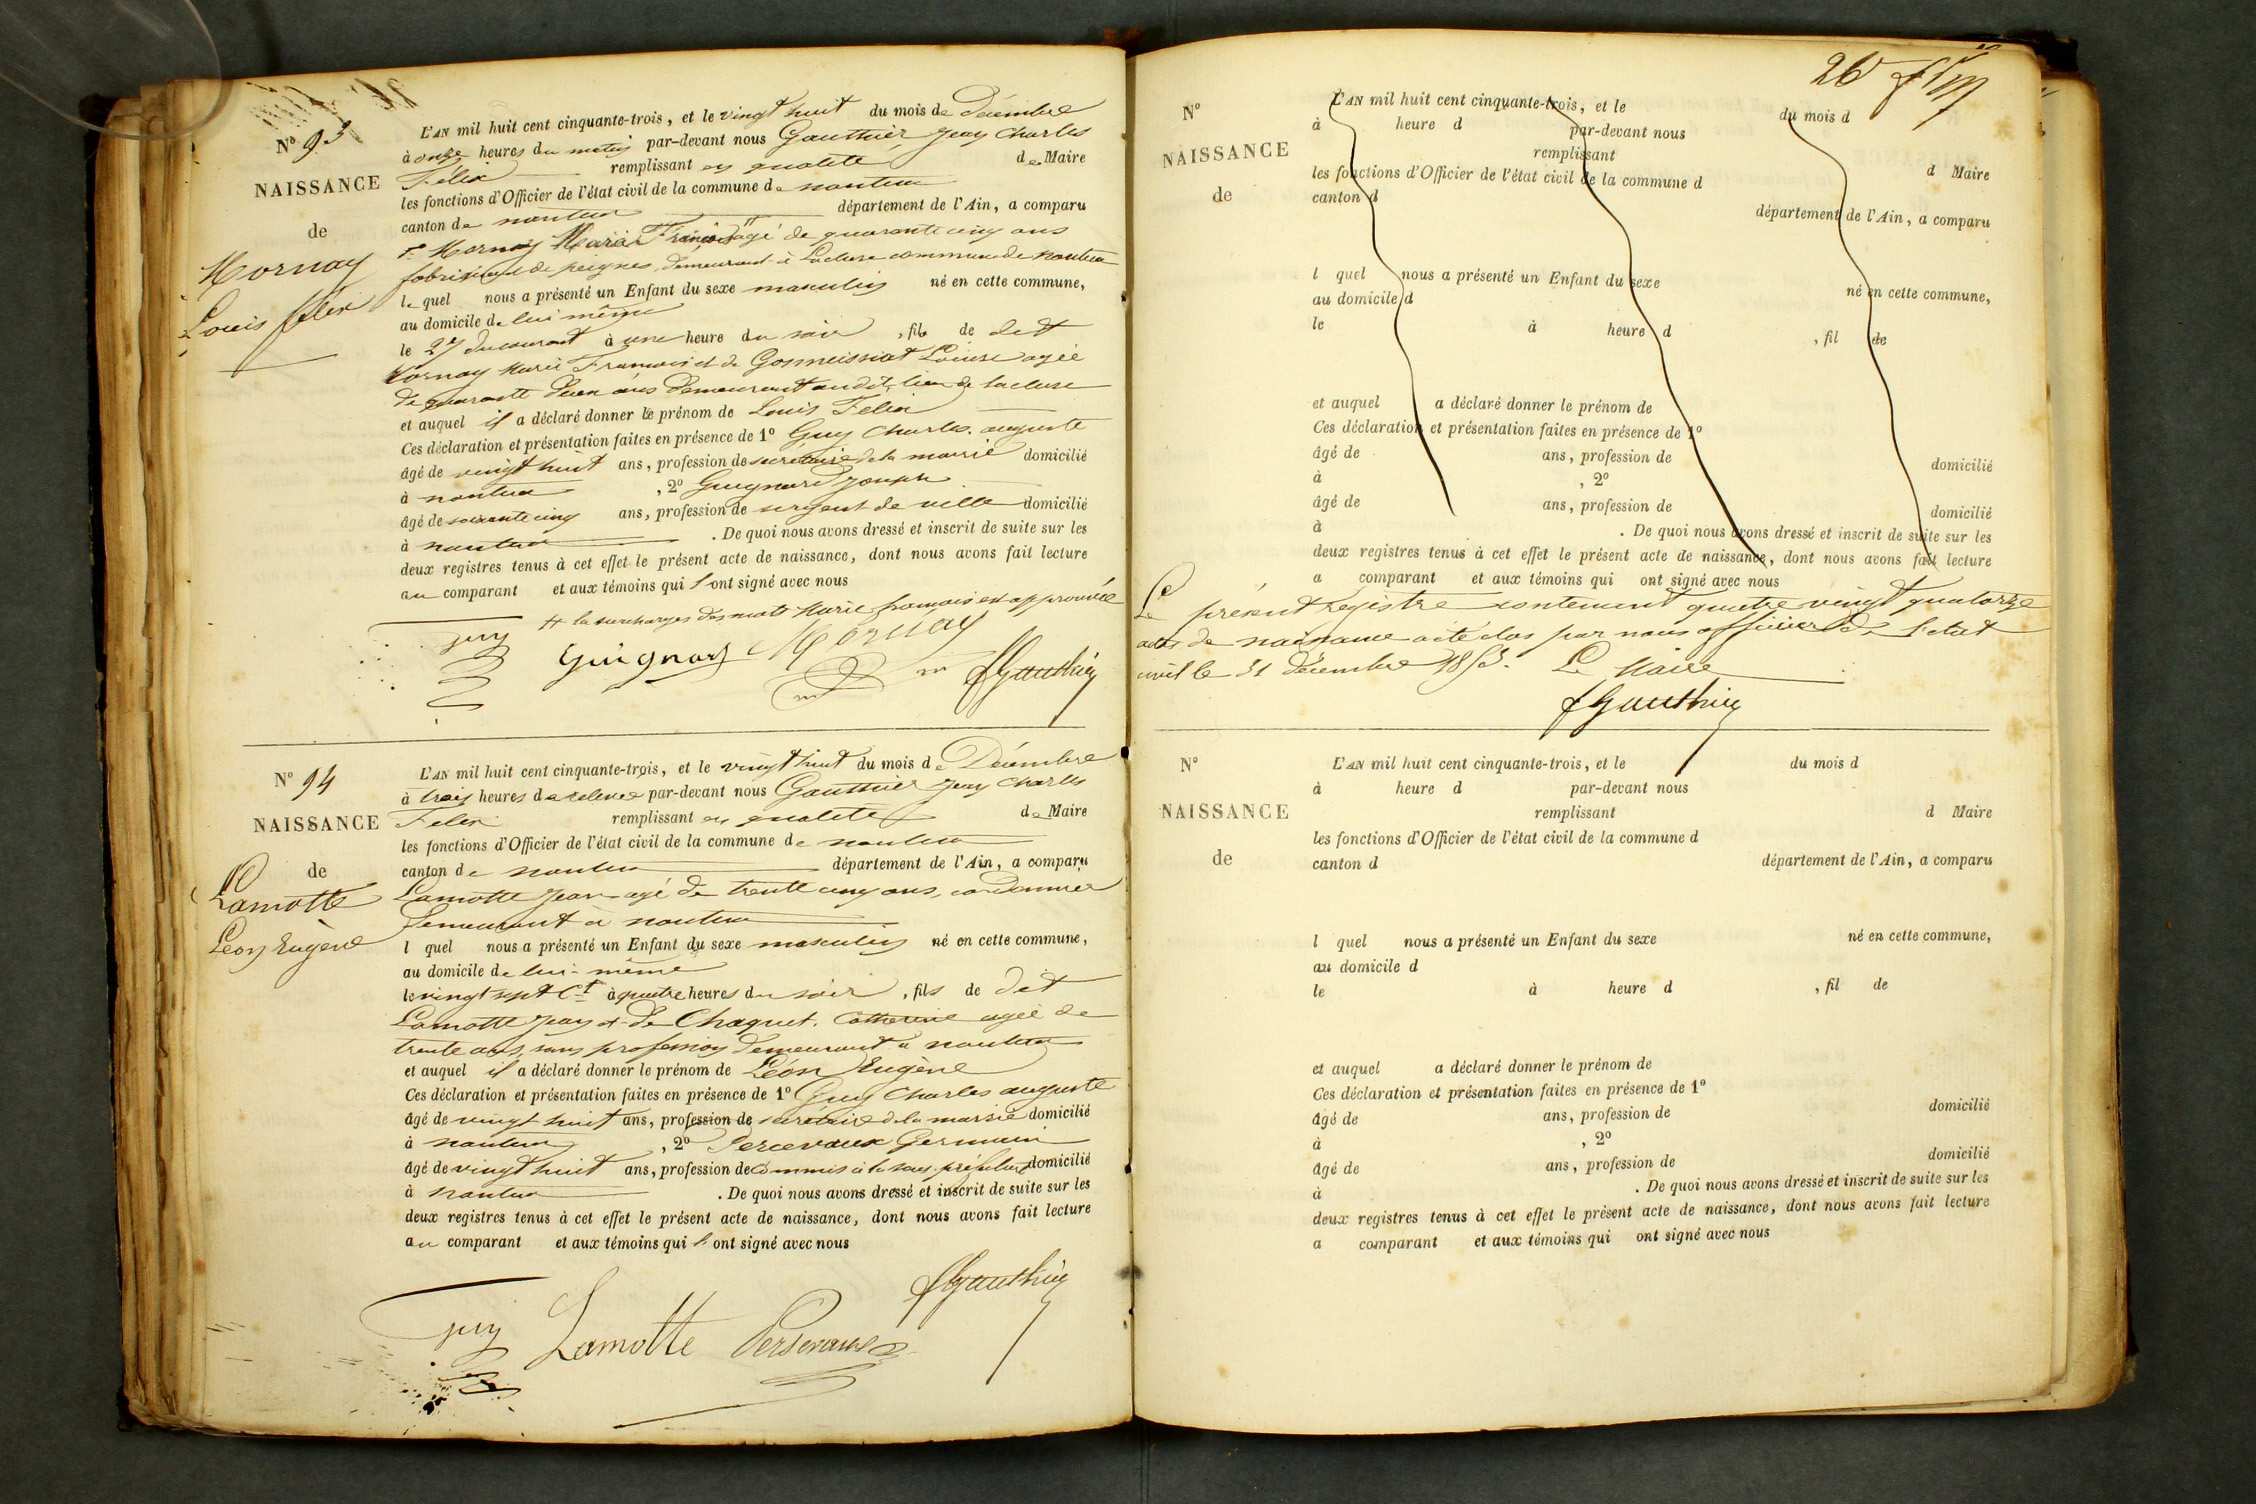 N° 93
NAISSANCE
de
Mornay
Louis félix
L'AN mil huit cent cinquante-trois, et le vingt huit du mois de Décembre
à onze heures du matin par-devant nous Gauthier Jean Charles
Félix remplissant en qualité de Maire
les fonctions d'Officier de l'état civil de la commune de nantua
canton de nantua département de l'Ain, a comparu
Mornay Marie François âgé de quarante cinq ans
fabricant de peignes, demeurant à Lacluse commune de Nantua
lequel nous a présenté un Enfant du sexe masculin né en cette commune,
au domicile de lui même
le 27 du courant à une heure du soir, fils de dit
Mornay Marie François et de Gonneissiat Louise agée
de quarante deux ans demeurant audit lieu de lacluse
et auquel il a déclaré donner le prénom de Louis Felix
Ces déclaration et présentation faites en présence de 1° Guy Charles auguste
âgé de vingt huit ans, profession de secrétaire de la mairie domicilié
à nantua, 2° Guignard Joseph
âgé de soixante cinq ans, profession de sergent de ville domicilié
à nantua. De quoi nous avons dressé et inscrit de suite sur les
deux registres tenus à cet effet le présent acte de naissance, dont nous avons fait lecture
au comparant et aux témoins qui l'ont signé avec nous
# la surcharges des mots Marie françois est approuvée
guy Guignard Mornay fGauthier
N° 94
NAISSANCE
de
Lamotte
Léon Eugène
L'AN mil huit cent cinquante-trois, et le vingt huit du mois de Décembre
à trois heures de relevée par-devant nous Gauthier Jean Charles
Felix remplissant en qualité de Maire
les fonctions d'Officier de l'état civil de la commune de nantua
canton de nantua département de l'Ain, a comparu
Lamotte Jean agé de trente cinq ans, cordonnier
demeurant à nantua
l quel nous a présenté un Enfant du sexe masculin né en cette commune,
au domicile de lui-même
le vingt sept Ct à quatre heures du soir, fils de dit
Lamotte Jean et de Chaquet Catherine agée de
trente ans, sans profession demeurant à nantua
et auquel il a déclaré donner le prénom de Léon Eugène
Ces déclaration et présentation faites en présence de 1° Guy Charles auguste
âgé de vingt huit ans, profession de secrétaire de la mairie domicilié
à nantua, 2° Percevaux Germain
âgé de vingt huit ans, profession de commis à la sous-préfecture domicilié
à nantua. De quoi nous avons dressé et inscrit de suite sur les
deux registres tenus à cet effet le présent acte de naissance, dont nous avons fait lecture
au comparant et aux témoins qui l'ont signé avec nous
fGauthier
guy Lamotte
26
N°
NAISSANCE
de
L'AN mil huit cent cinquante-trois, et le du mois d
à heure d par-devant nous
remplissant d Maire
les fonctions d'Officier de l'état civil de la commune d
canton d département de l'Ain, a comparu
l quel nous a présenté un Enfant du sexe né en cette commune,
au domicile d
le à heure d , fil de
et auquel a déclaré donner le prénom de
Ces déclaration et présentation faites en présence de 1°
âgé de ans, profession de domicilié
à , 2°
âgé de ans, profession de domicilié
à . De quoi nous avons dressé et inscrit de suite sur les
deux registres tenus à cet effet le présent acte de naissance, dont nous avons fait lecture
a comparant et aux témoins qui ont signé avec nous
Le présent registre contenant quatre vingt quatorze
actes de naissance a été clos par nous officier de l'état
civil le 31 décembre 1853. Le Maire
fGauthier
N°
NAISSANCE
de
L'AN mil huit cent cinquante-trois, et le du mois d
à heure d par-devant nous
remplissant d Maire
les fonctions d'Officier de l'état civil de la commune d
canton d département de l'Ain, a comparu
l quel nous a présenté un Enfant du sexe né en cette commune,
au domicile d
le à heure d , fil de
et auquel a déclaré donner le prénom de
Ces déclaration et présentation faites en présence de 1°
âgé de ans, profession de domicilié
à , 2°
âgé de ans, profession de domicilié
à . De quoi nous avons dressé et inscrit de suite sur les
deux registres tenus à cet effet le présent acte de naissance, dont nous avons fait lecture
a comparant et aux témoins qui ont signé avec nous